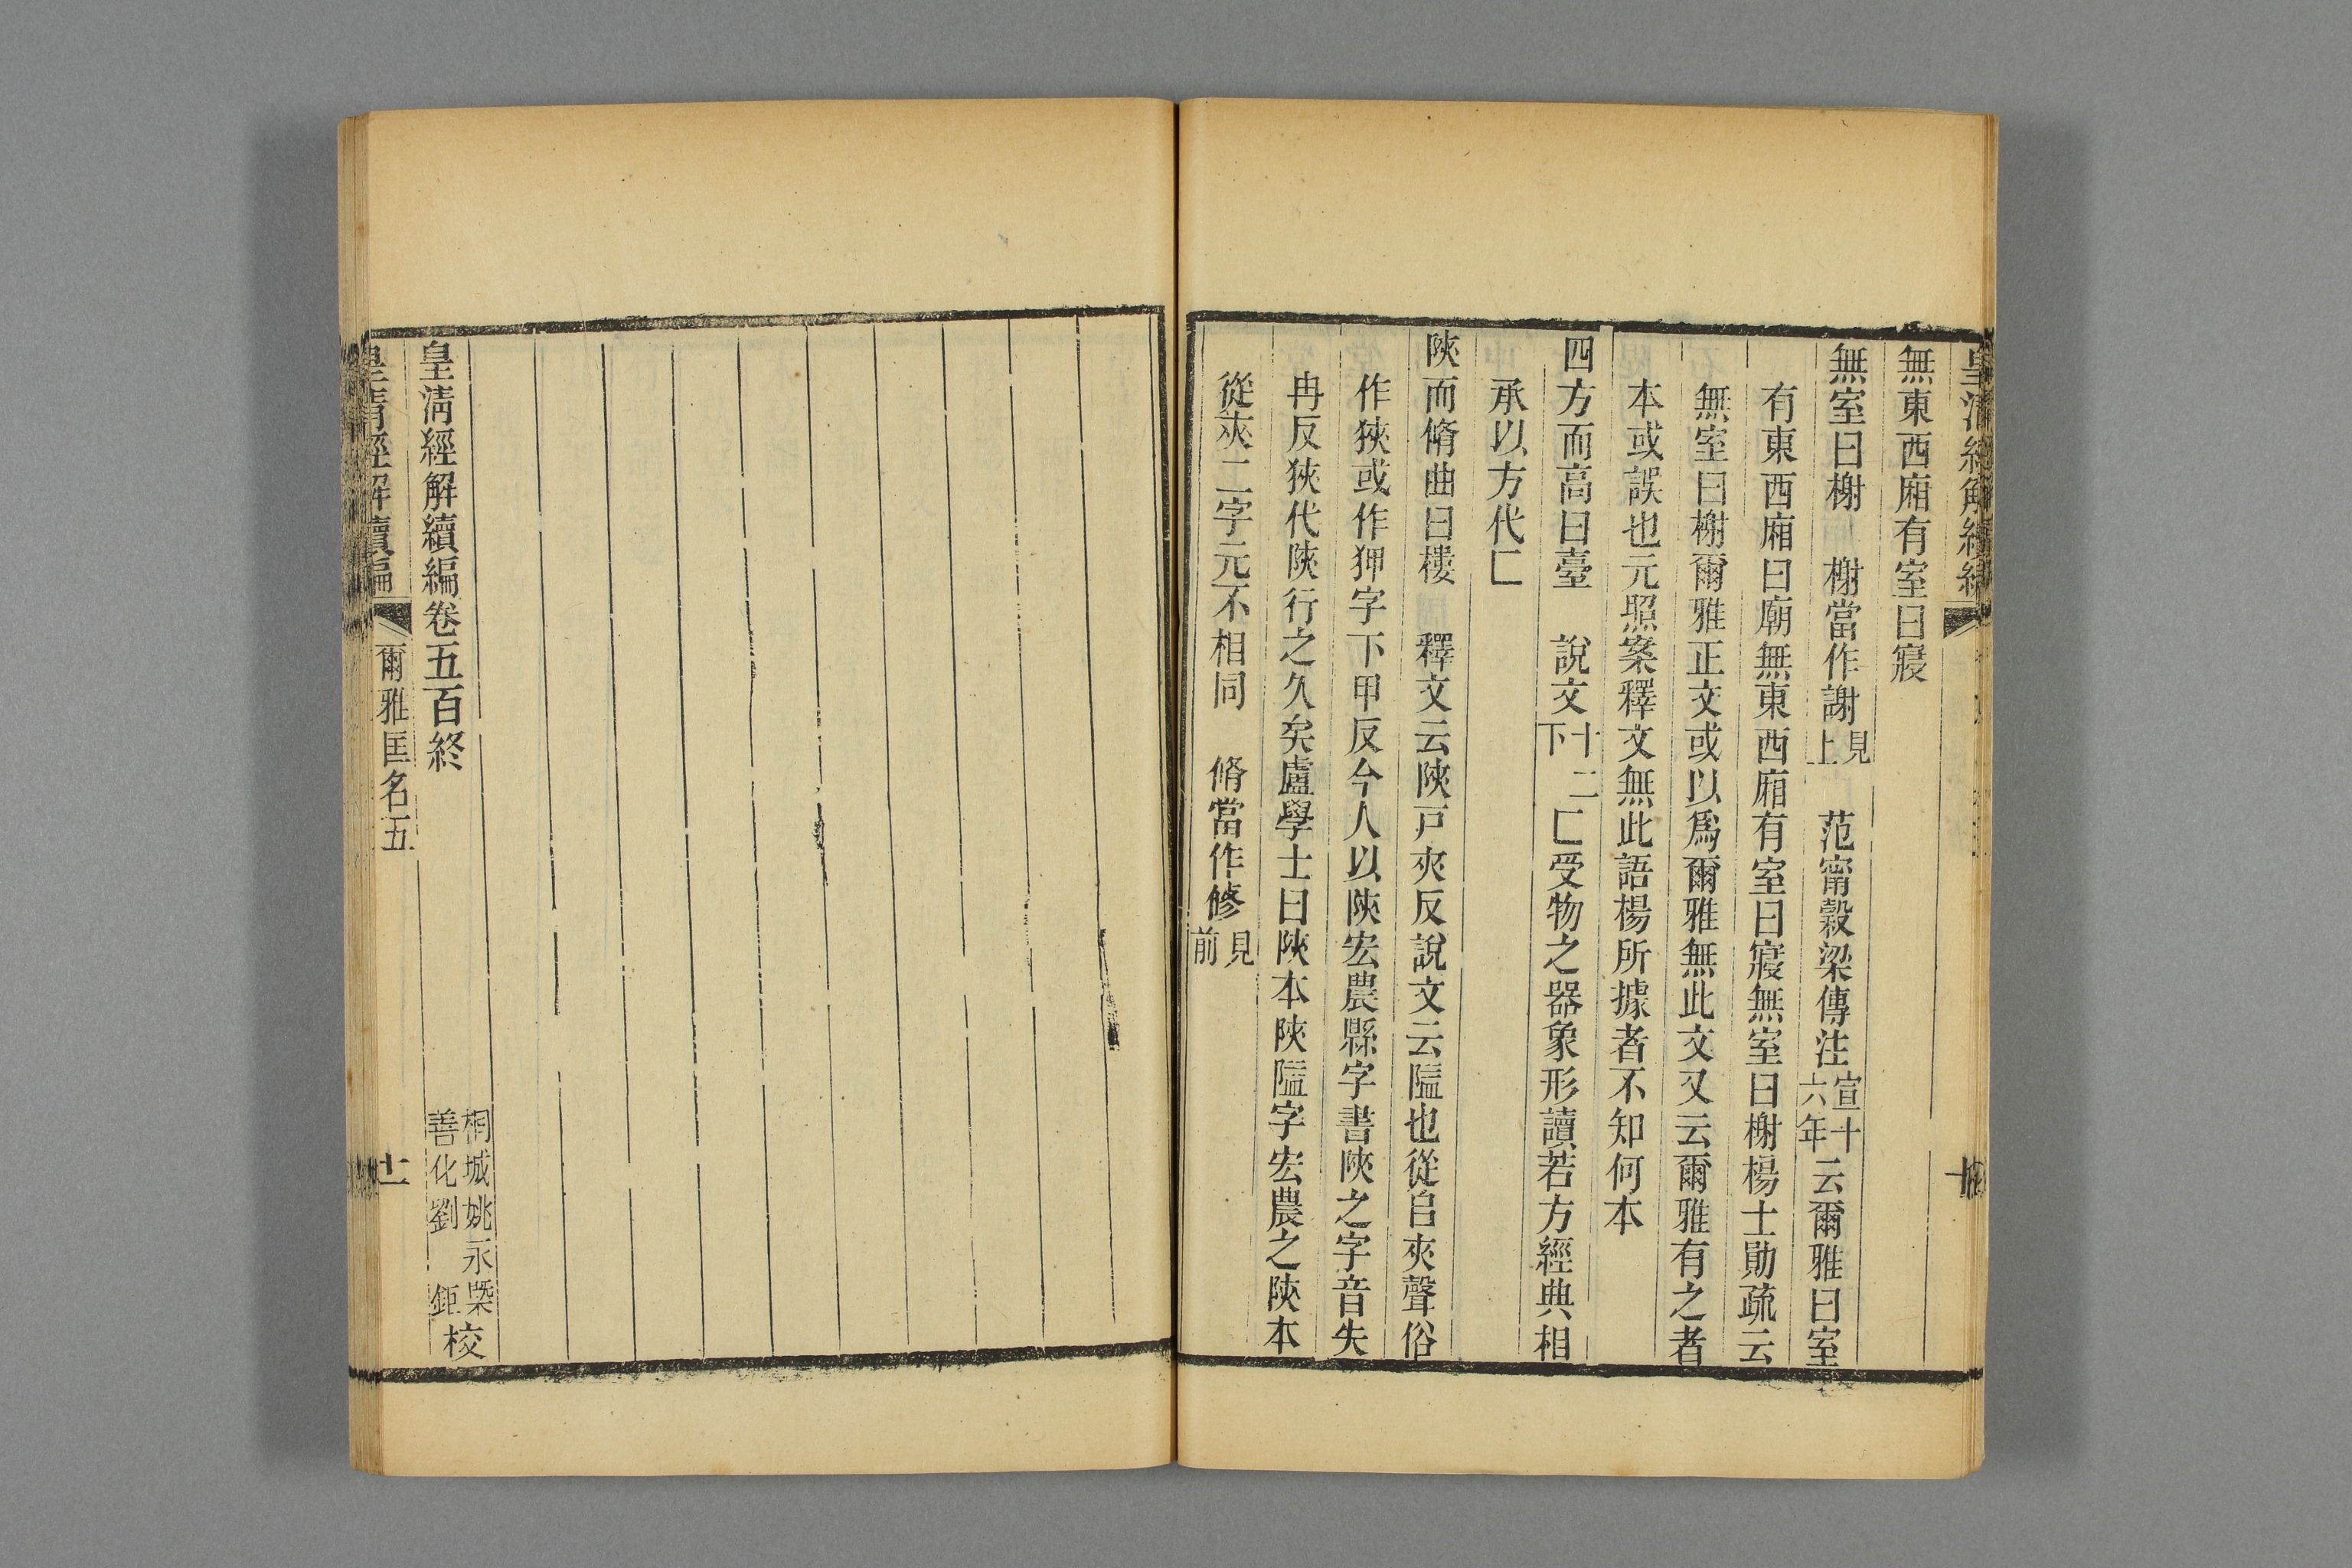 無東西廂有室曰寢
無室曰榭　榭當作謝見上　范甯穀梁傳注宣十六年云爾雅曰室
有東西廂曰廟無東西廂有室曰寢無室曰榭楊士勛疏云
無室曰榭爾雅正文或以爲爾雅無此文又云爾雅有之者
本或誤也元照案釋文無此語楊所據者不知何本
四方而高曰臺　說文十二下匚受物之器象形讀若方經典相
承以方代匚
陜而脩曲曰樓　釋文云陜戸夾反說文云隘也從𨸏夾聲俗
作狹或作狎字下甲反今人以陜宏農縣字書陜之字音失
冉反狹代陜行之久矣盧學士曰陜本陜隘字宏農之陝本
從㚒二字元不相同　脩當作修見前
皇清經解續編卷五百終
桐城姚永㮣
善化劉　鉅校
皇清經解續編
爾雅匡名五
十一